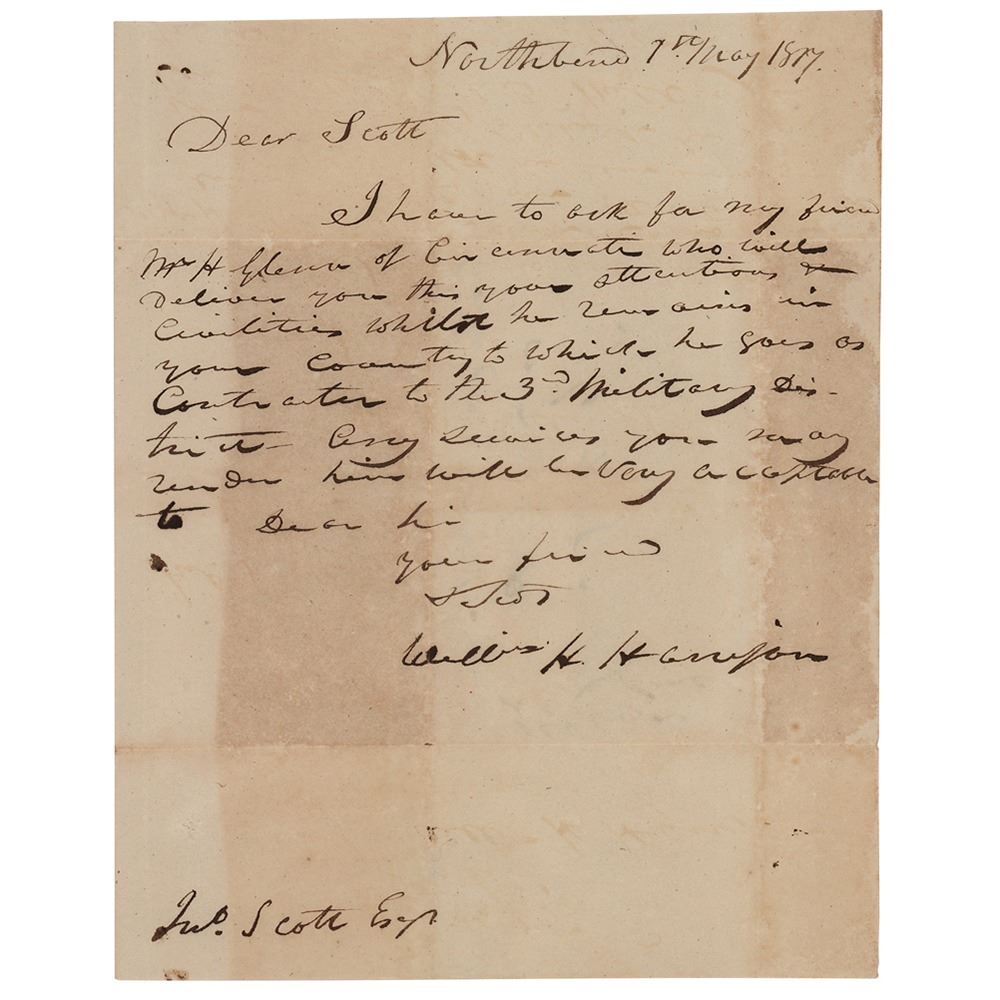 Northbend 7th May 1817.
Dear Scott
I have to ask for my friend
Mr H Glenn of Cincinnati who will
deliver you this your attentions &
Civilities whilst he remains in
your Country to which he goes as
Contractor to the 3d. Military Dis-
trict - Any services you may
render him will be very acceptable
to Dear Sir
your friend
Willm H. Harrison
Jno. Scott Esqr.